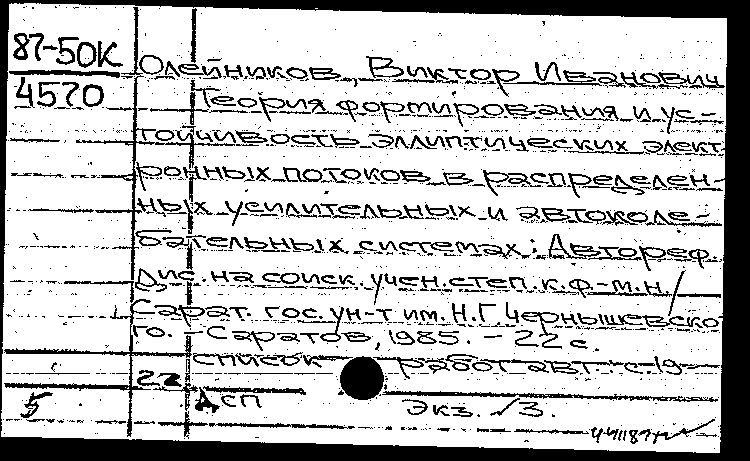 87-50К
4570
Олейников, Виктор Иванович
Теория формирования и ус-
тойчивость эллиптических элект
ронных потоков в распределен-
ных усилительных и автоколе-
бательных системах: Автореф.
дис. на соиск. учен. степ. к.ф.-м.н./
Сарат. гос. ун-т им. Н.Г. Чернышевско-
го. – Саратов, 1985. – 22 с.
список работ авт.: с. 19-
22
ДСП
5
Экз. √3.